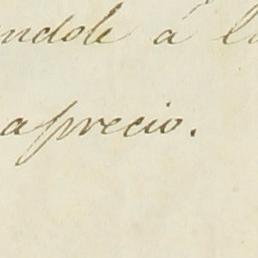 ndole á l
aprecio.